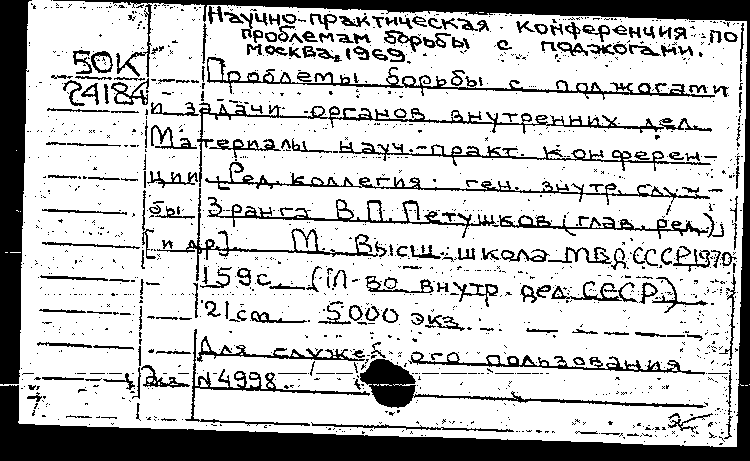 Научно-практическая конференция по
проблемам борьбы с поджогами.
Москва, 1969.
50К
24184
Проблемы борьбы с поджогами
и задачи органов внутренних дел.
Материалы науч.-практ. конферен-
ции. [Ред. коллегия: ген. внутр. служ-
бы 3 ранга В.П. Петушков (глав. ред.),
[и др.] М., Высш. школа МВД СССР, 1970
159 с. (М-во внутр. дел СССР)
21 см. 5000 экз.
Для служеб ого пользования
Экз. N 4998.